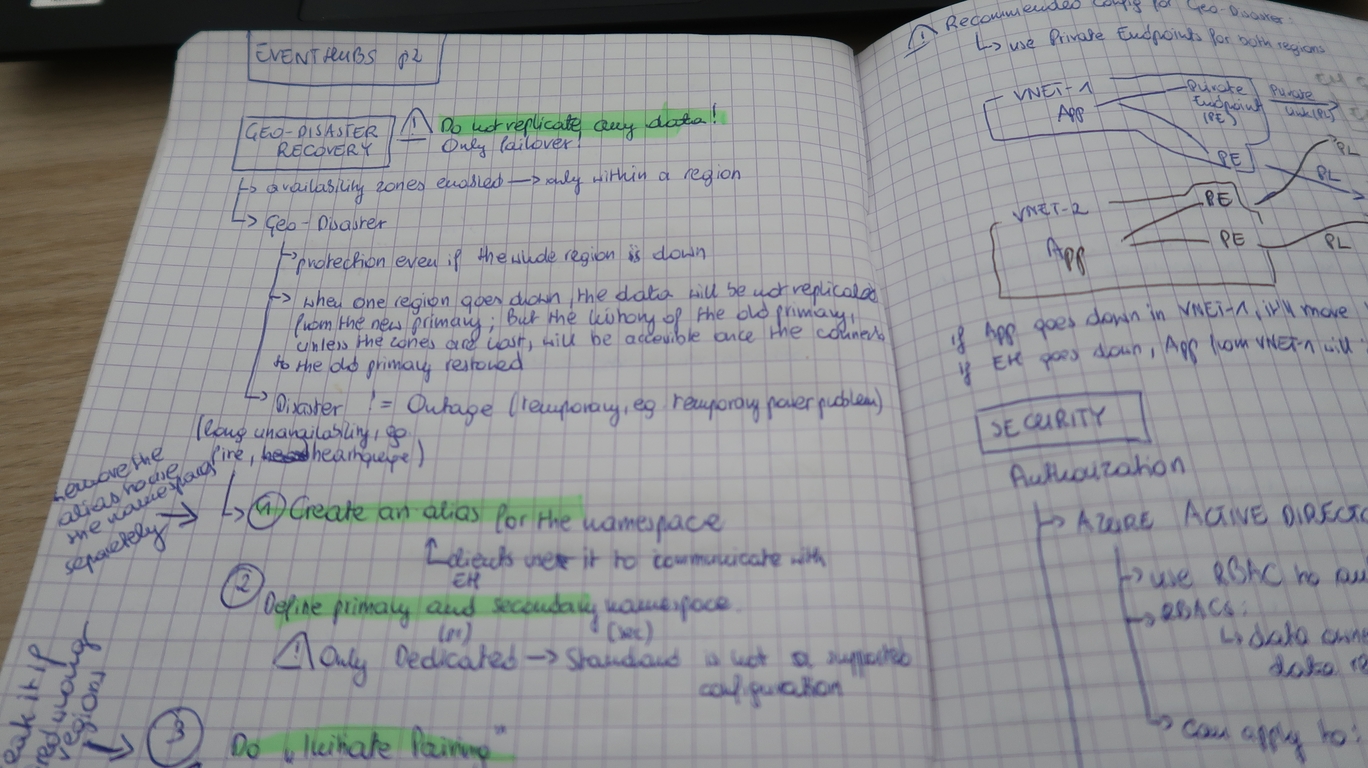 EVENT HUBS p2
GEO-DISASTER RECOVERY
⚠ Do not replicate any data!
Only failover!
↳ availability zones enabled → only within a region
↳ Geo-Disaster
↳ protection even if the whole region is down
↳ when one region goes down, the data will be not replicated
from the new primary; But the history of the old primary,
unless the zones are lost, will be accessible once the
to the old primary restored
↳ Disaster != Outage (temporary, eg temporary power problem)
(long unavailability, eg
fire, hearthquape)
remove the
alias to use
the namespaces
separately →
↳ ① Create an alias for the namespace
clients use it to communicate with
EH
② Define primary and secondary namespace
(pr) (sec)
⚠ Only Dedicated → Standard is not a supported
configuration
Break it if
moving
regions →
③ Do "Initiate Pairing"
⚠ Recommended config for Geo-Disaster:
↳ use Private Endpoints for both regions
VNET-1
App
Private
Endpoint
(PE)
Private
Link (PL)
PE
PL
PL
VNET-2
App
PE
PE
PL
if App goes down in VNET-1, it'll move
if EH goes down, App from VNET-1 will
SECURITY
Authorization
↳ AZURE ACTIVE DIRECTO
↳ use RBAC to au
↳ RBACs:
↳ data owne
data re
↳ can apply to: